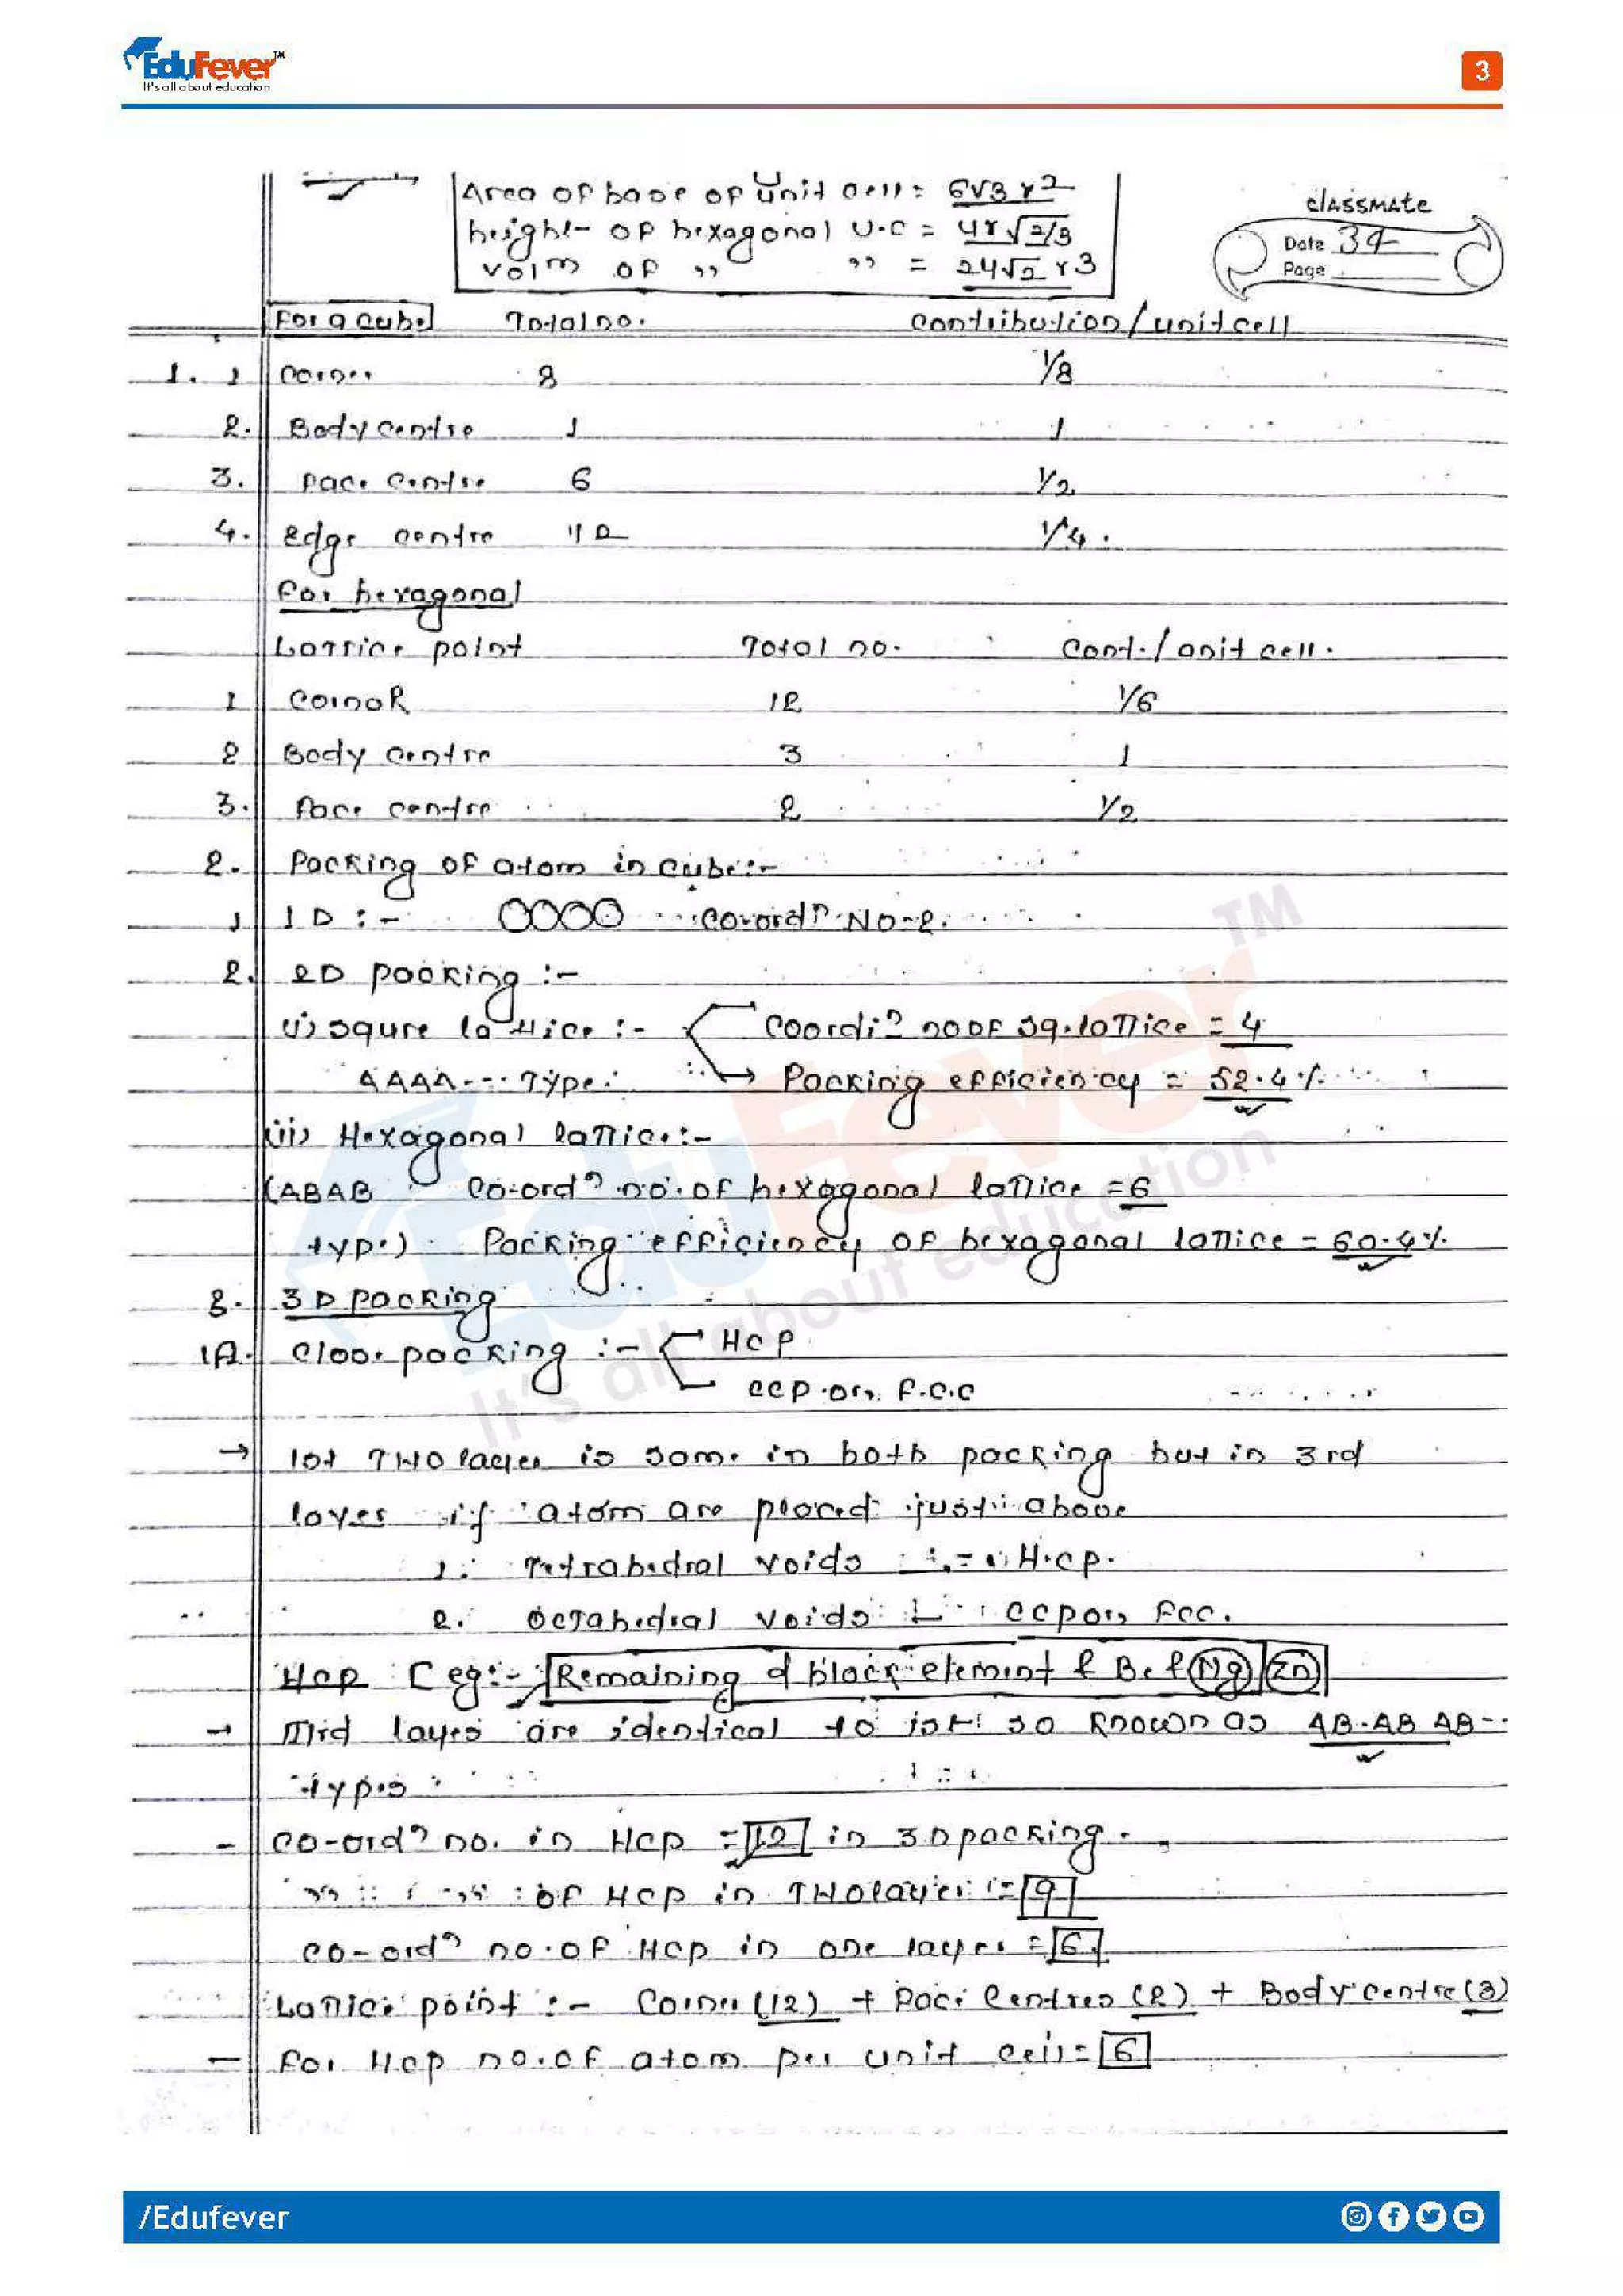 EduFever™
It's all about education
3
Area of base of unit cell = 6√3 r²
height of hexagonal U.C = 4r√2/3
volm of ,, ,, = 24√2 r3
classmate
Date 34
Page
For a cube Total no. Contribution / unit cell
1. 1 Corner 8 1/8
2. Body centre 1 1
3. Face centre 6 1/2
4. Edge centre 12 1/4.
For hexagonal
Lattice point Total no. Cont. / unit cell.
1 Cornor 12 1/6
2 Body centre 3 1
3. Face centre 2 1/2
2. Packing of atom in cube:-
1 1D :- Co-ordn No-2.
2. 2D packing :-
(i) squre lattice :- Coordin no of sq. lattice = 4
AAAA--- Type. → Packing efficiency = 52.4 %
(ii) Hexagonal lattice:-
(ABAB Co-ordn no. of hexagonal lattice = 6
type) Packing efficiency of hexagonal lattice = 60.4%
3. 3D packing
1A. Close packing :- Hcp
ccp or, F.C.C
→ 1st Two layer is same in both packing but in 3rd
layer if atom are placed just above
1. Tetrahedral voids := Hcp.
2. Octahedral voids ccp or, Fcc.
Hcp [eg:- Remaining d block element & Be & Mg Zn
→ IIIrd layes are identical to ist so known as AB.AB AB--
types
- co-ordn no. in Hcp = 12 in 3D packing.
,, ,, of Hcp in Two layer = 9
co-ordn no. of Hcp in one layer = 6
Lattice point :- Corner (12) + Face Centres (2) + Body centre (3)
- For Hcp no. of atom per unit cell = 6
EduFever™
It's all about education
/Edufever